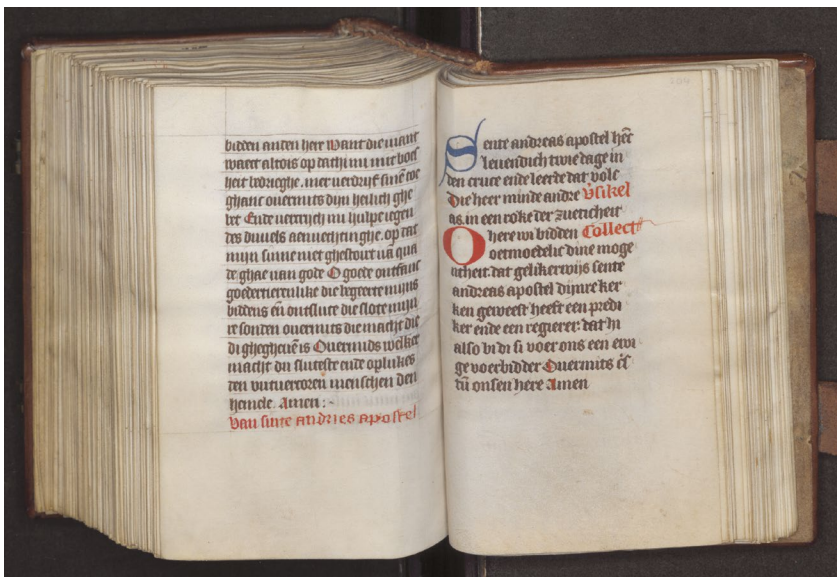 bidden anden here Want die viant
waect altois op dat hi mi mit boes
heit bedrieghe. mer verdrijf sinē toe
ghanc ouermits dijn heilich ghe
bet Ende vercrijch mi hulpe iegen
des duuels aenvechtinghe. op dat
mijn sinne niet ghestoert vā qua
de ghae van gode O goede ontfanc
goedertierenlike die begeerte mijns
biddens eñ ontsluce die slote mijn
re sonden ouermits die macht die
di ghegheuē is Ouermids welker
macht du sluteste ende oplukes
den vutuercoren menschen den
hemele. Amen :~
Van sinte andries apostel
Sente andreas apostel hēt
leuendich twie dage in
den cruce ende leerde dat volc
Die heer minde andre Vsikel
as in een roke der zueticheit
O here wi bidden Collect
oetmoedelic dine moge
ntheit. dat gelikerwijs sente
andreas apostel dijnre ker
ken geweest heeft een predi
ker ende een regierer: dat hi
also bi di si voer ons een ewi
ge voerbidder Ouermits c̄s
tū onsen here Amen